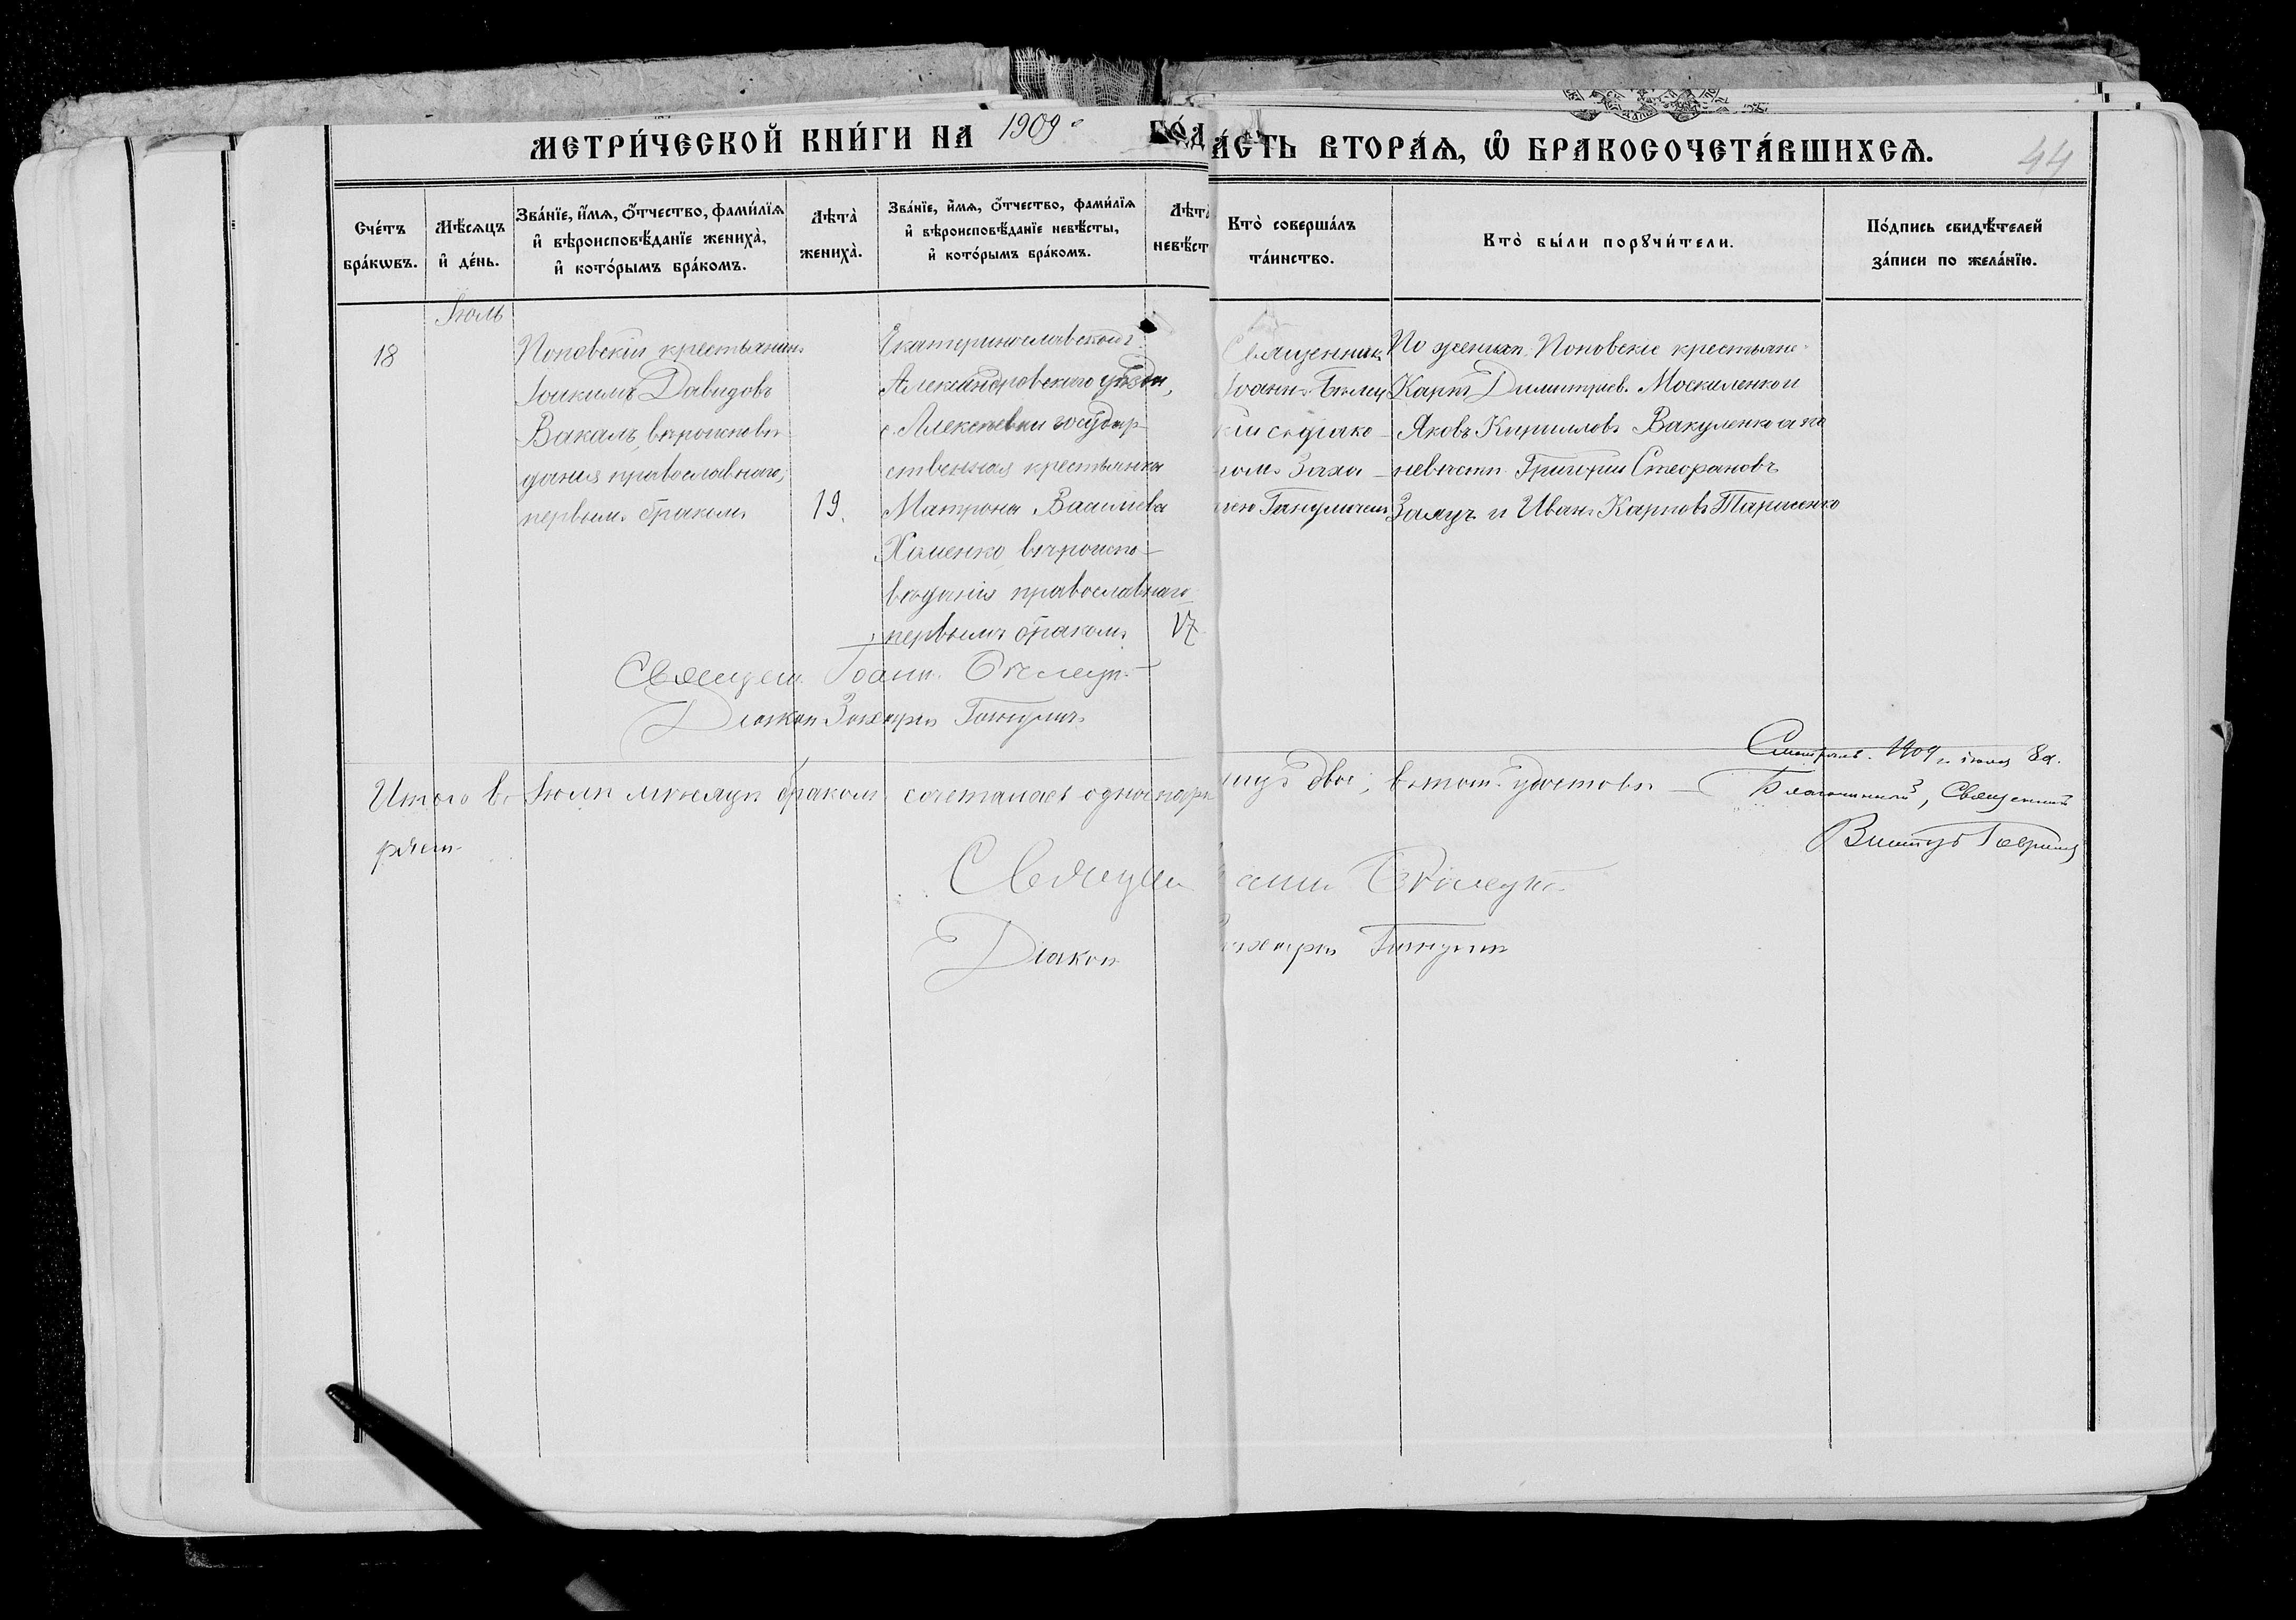 МЕТРИ́ЧЕСКОЙ КНИ́ГИ НА 1909 ГО́Д
А́СТЬ ВТОРА́Ѧ, Ѡ҆ БРАКОСОЧЕТА́ВШИХСѦ.
44
Сче́тъ бра́кѡвъ.
Мѣ́сѧцъ и҆ де́нь.
Зва́нїе, и҆́мѧ, ѻ҆́тчество, фами́лїѧ
и҆ вѣроисповѣ́данїе женихА̀,
и҆ кото́рымъ бра́комъ.
Лѣта̀ жениха̀.
Зва́нїе, и҆́мѧ, ѻ҆́тчество, фами́лїѧ
и҆ вѣроисповѣ́данїе невѣ́сты,
и҆ кото́рымъ бра́комъ.
Лѣт
невѣ́ст
Кто̀ соверша́лъ
та́инство.
Кто̀ бы́ли порꙋчи́тели.
По́дпись свидѣ́телей
за́писи по жела́нїю.
Іюль
18
Поповскій крестьянинъ
Іоакимъ Давидовъ
Вакалъ, вѣроисповѣ-
данія православнаго,
первымъ бракомъ
19.
Екатеринославской г.
Александровскаго уѣзда,
с. Алексѣевки государ-
ственная крестьянка
Матрона Васильева
Хоменко, вѣроиспо-
вѣданія православнаго
первымъ бракомъ
17
Священникъ
Іоаннъ Бѣлец
кій съ діако-
номъ Заха-
По женихѣ: Поповскіе крестьяне
Карпъ Димитріев. Москаленко и
Яковъ Кирилловъ Вакуленко а по
невѣстѣ: Григорій Стефановъ
Заяцъ и Иванъ Карповъ Тарасенко
Священ. Іоаннъ Бѣлецк
Діакон Захарія
Итого въ Іюлѣ мѣсяцѣ бракомъ сочеталась одна пара
лицъ двое, въ томъ удостовѣ-
ряем
Священ
аннъ Бѣлецк
Діакон
ахарія
Смотрѣлъ 1909 г.
Благочинный, Священникъ